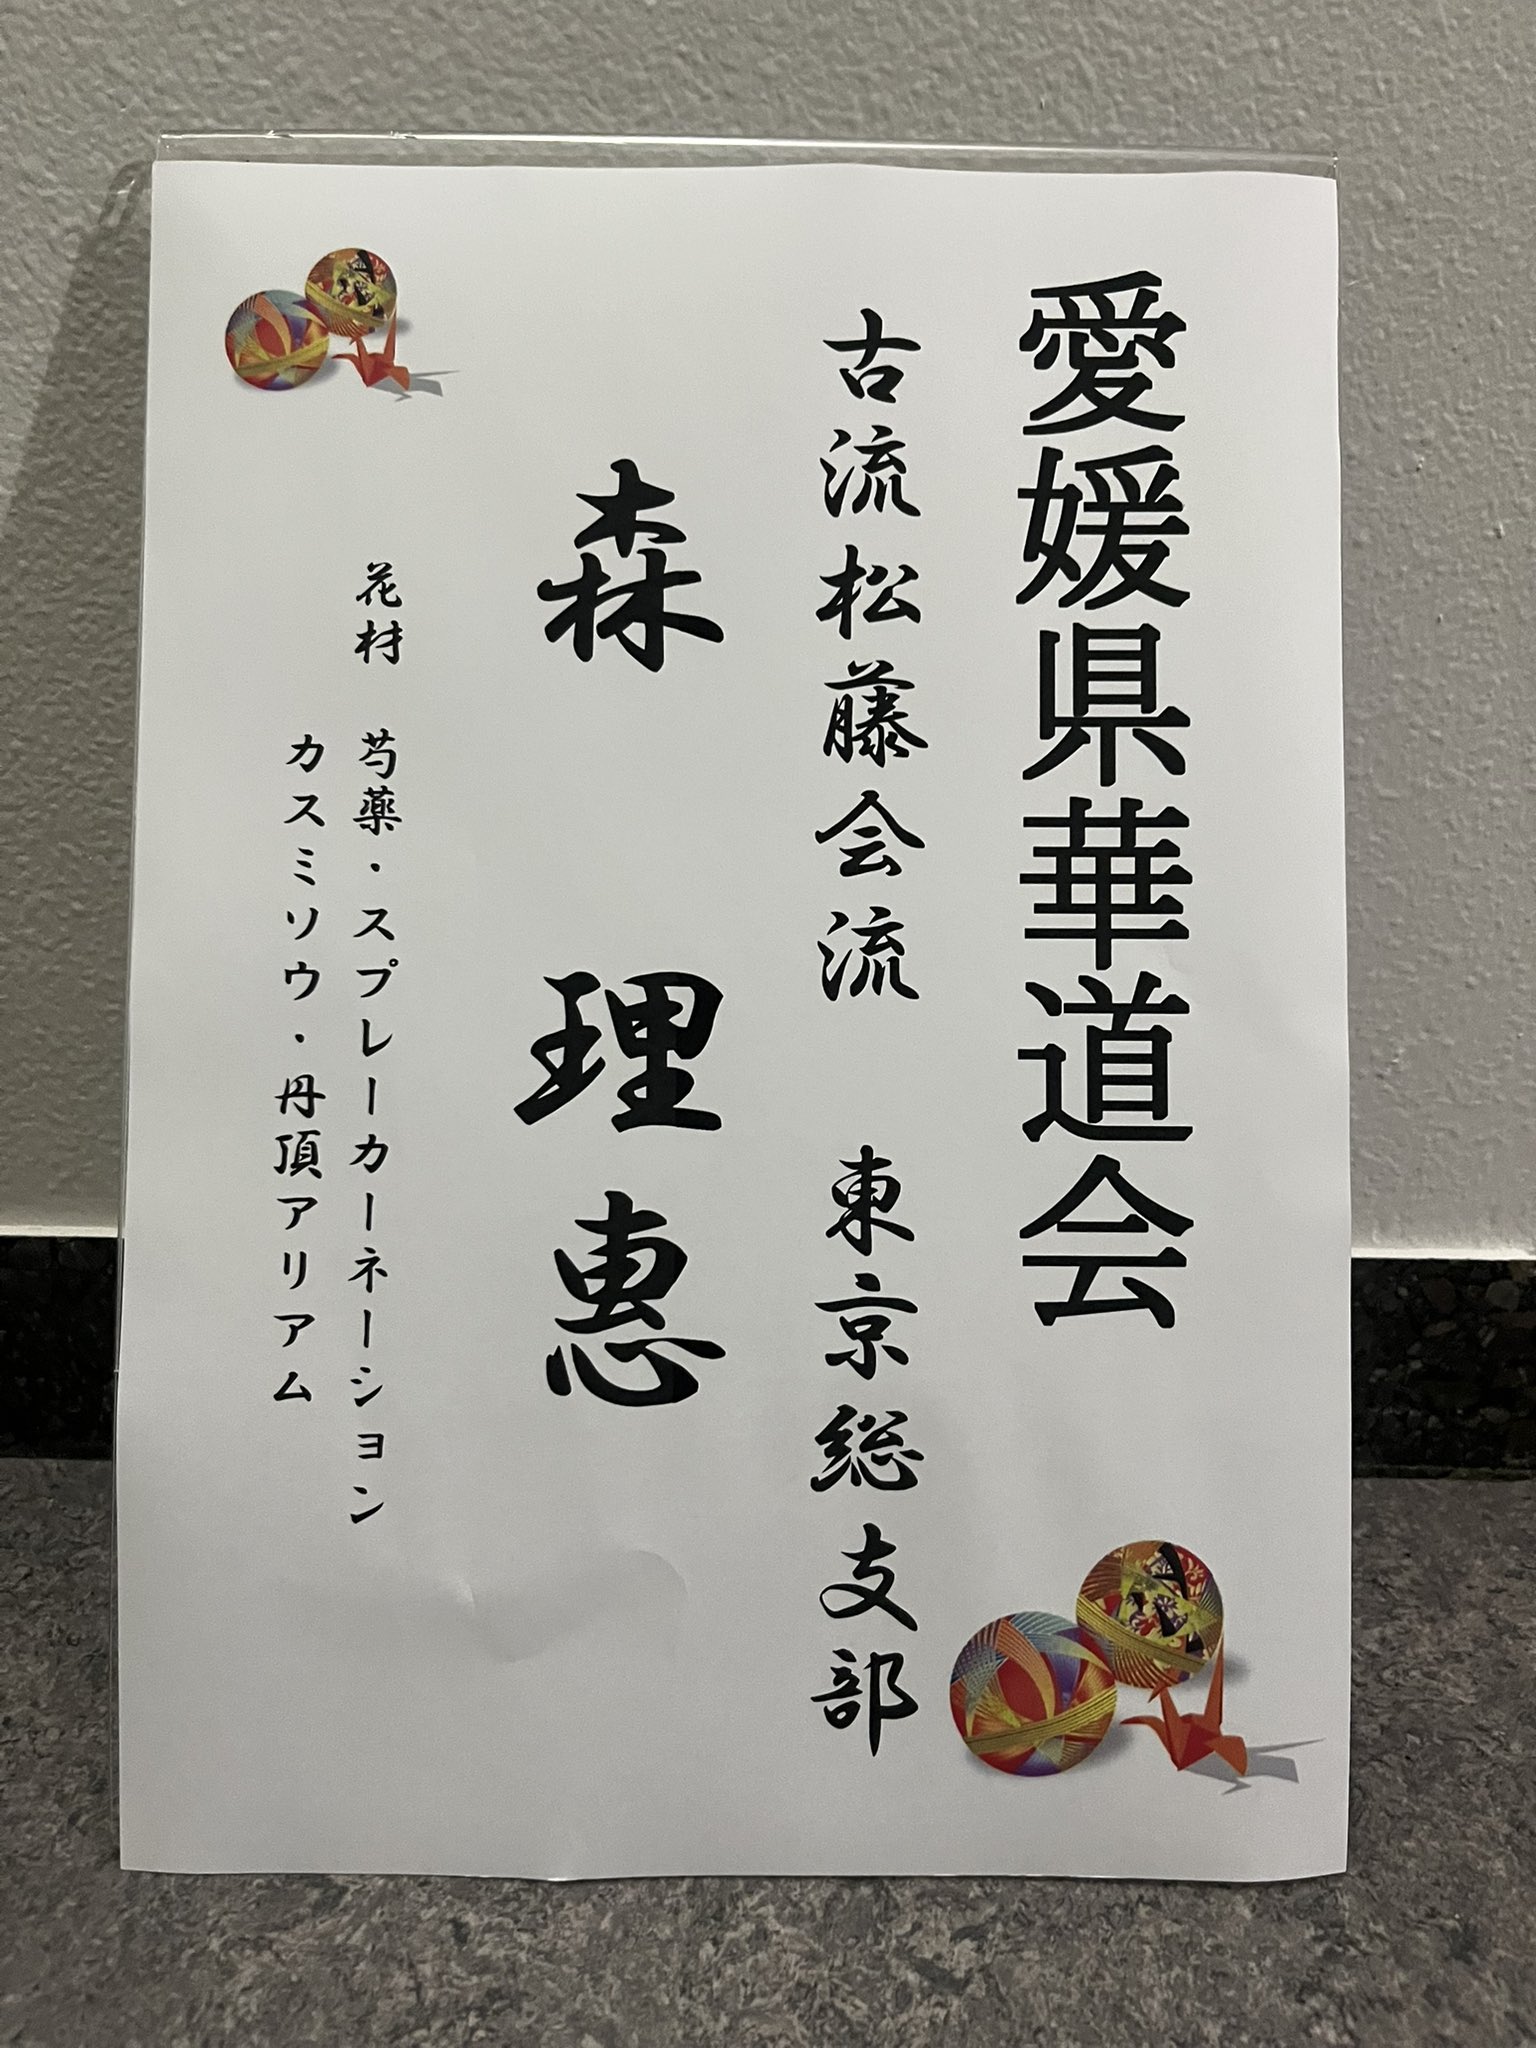 愛媛県華道会
古流松藤会流　東京総支部
森　理恵
花材　芍薬・スプレーカーネーション
カスミソウ・丹頂アリアム